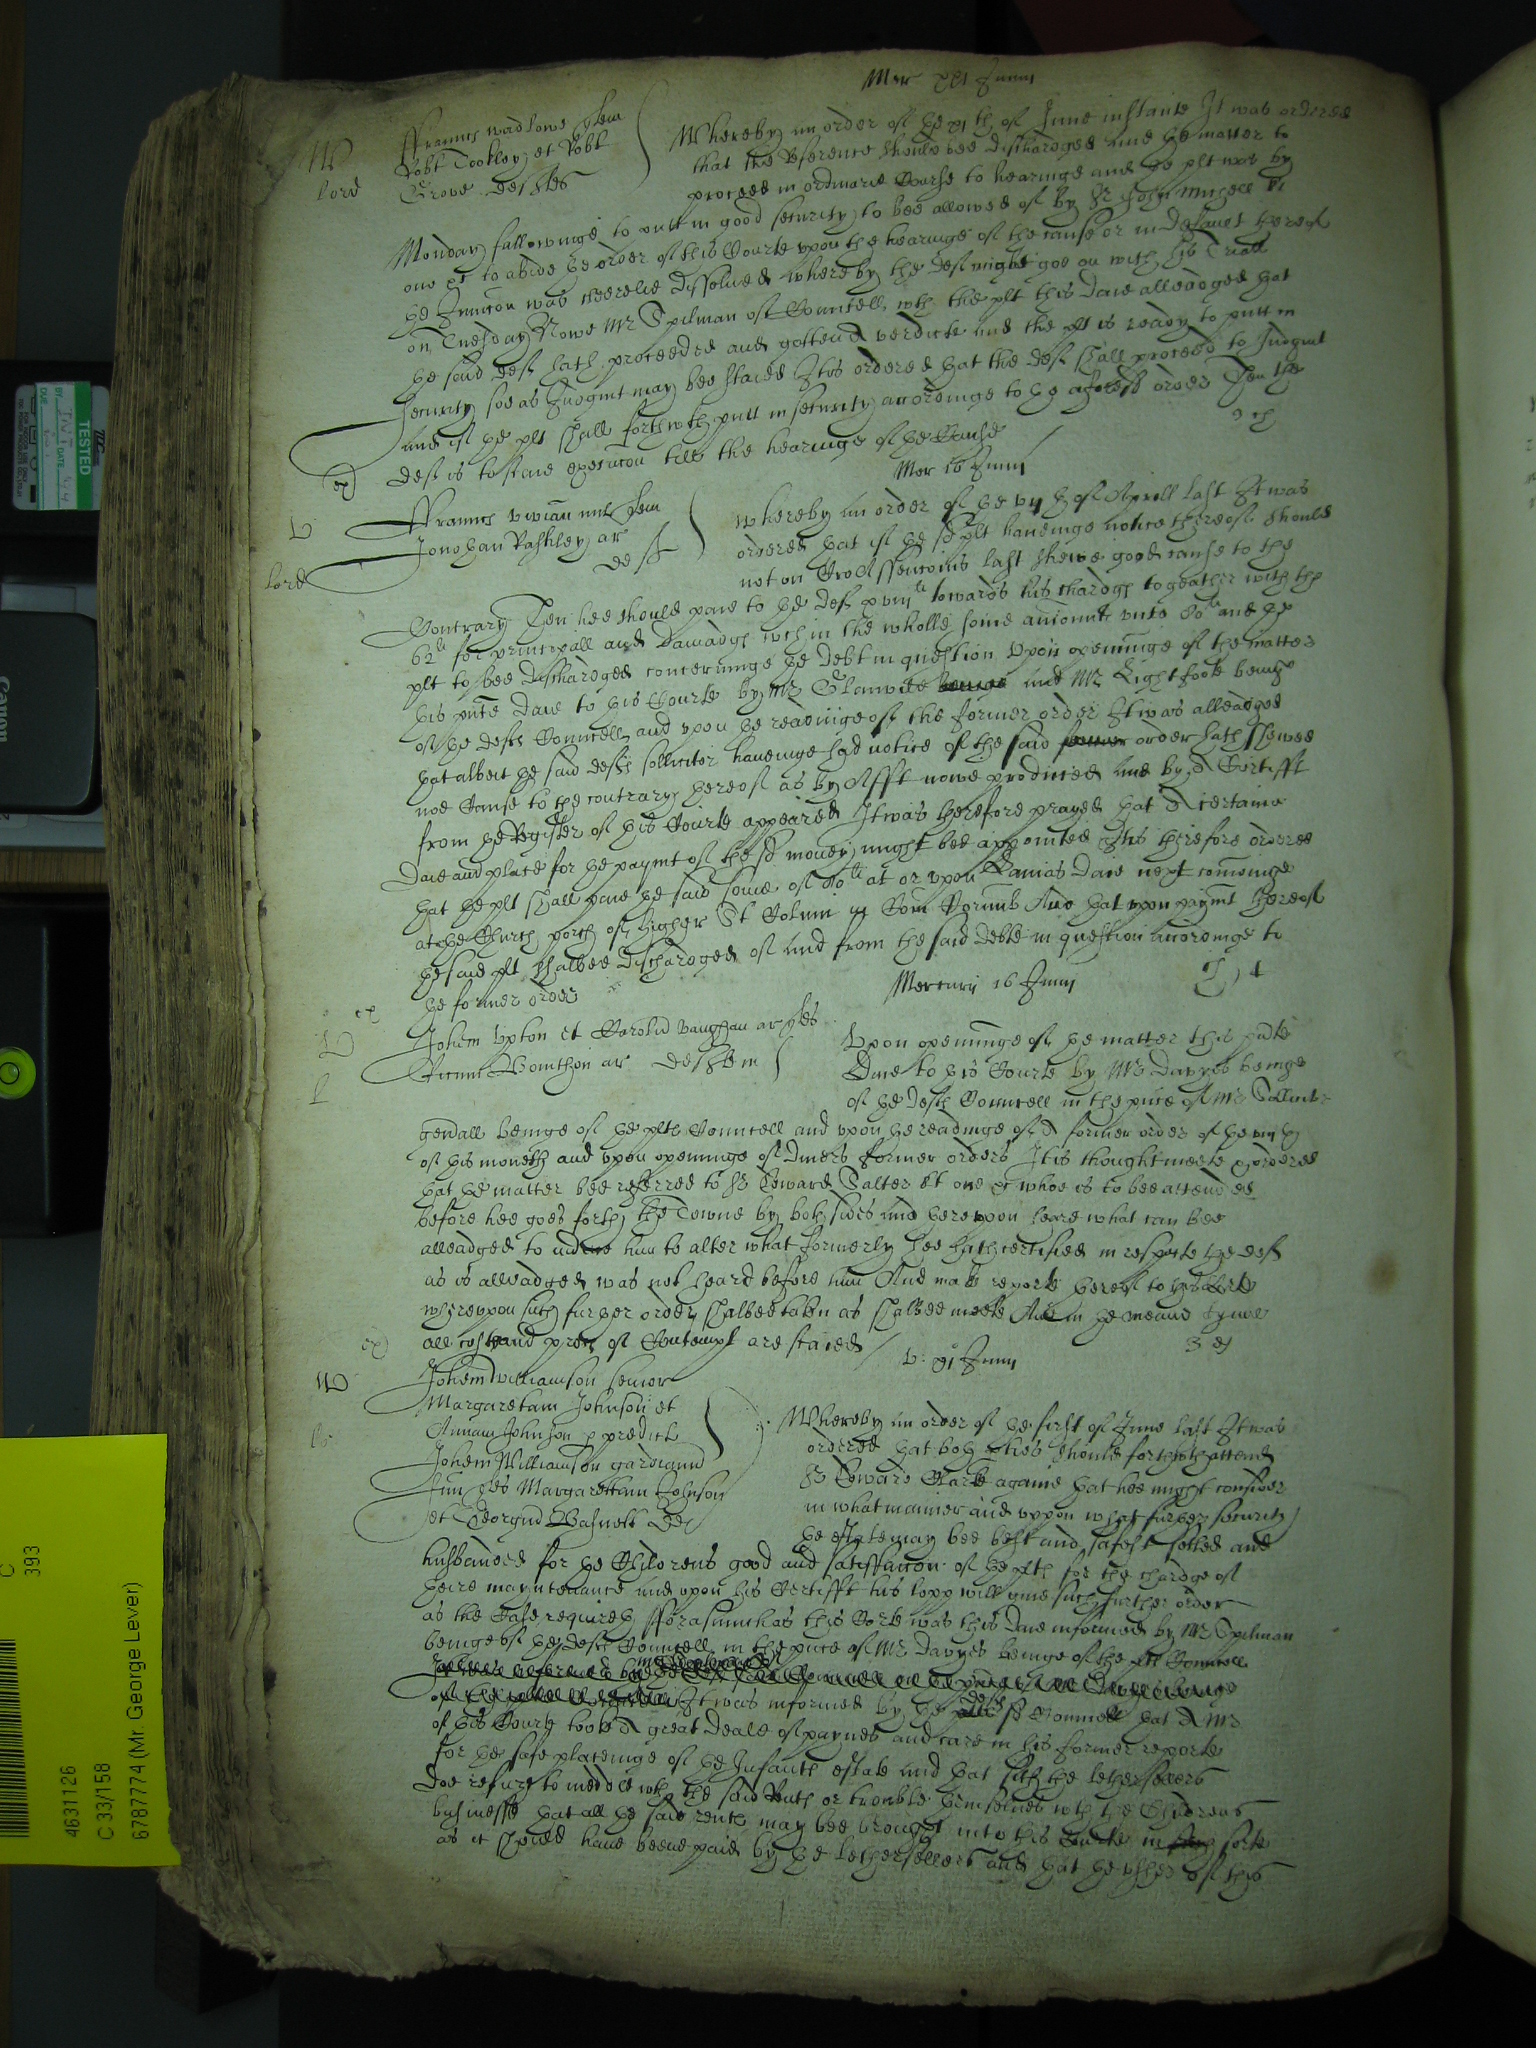 Mer xvi Junii
W
lord
ffranncis wadlowe
Robt Cookley et Robt
Grove deftes
Whereby an order of the xith of June instante It was ordered
that the Reference should bee discharged and the matter to
proceed in ordinarie Course to hearinge and the plt was by
Monday followinge to putt in good security to bee allowed of by Sr John Michell
one to abide the order of this Courte upon the hearinge of the cause or in default thereof
the Iniuncon was thereby dissolued whereby the deft might goe on with his Triall
on Tuesday Nowe Mr Spilman of Councell with the plt this daie alleadged that
the said deft hath proceeded and gotten a verdicte and the plt is ready to putt in
security soe as Judgmt may bee staied It is ordered that the deft shall proceed to Judgmt
and if the plt shall forthwth putt in security accordinge to the aforesd order Then the
deft is to staie execucon till the hearinge of the Cause
ex
Mer 16 Junii
V
lord
ffranncis vivian mil
Jonathan Rashley ar
deft
Whereby an order of the vijth of Aprill last It was
ordered that if the sd plt haueinge notice thereof should
not on last shewe good cause to the
Contrary Then hee should paie to the deft xviijli towards his chardgs togeather with the
62li for principall and damadgs wch in the wholle some amounte unto 80li and the
plt to bee dischardged concerninge the debt in question Upon openinge of the matter
this pnte daie to this Courte by Mr Glanvile and Mr Lightfoote beinge
of the defts Councell and upon the readinge of the former order It was alleadged
that albeit the said defts sollicitor haueinge had notice of the said former order hath shewed
noe Cause to the contrary thereof as by Afft nowe produced and by a Certifft
from the Register of this Courte appeared It was therefore prayed that a certaine
daie and place for the paymt of the sd money might bee appointed It is therefore ordered
that the plt shall paie the said some of 80li at or upon Lamas daie next cominge
at the Church porch of higher St Columb in Com Cornub And that upon paymt thereof
the said plt shalbee dischardged of and from the said debte in question accordinge to
the former order
ex
Mercurii 16 Junii
V
l
Johem Upton et Carolum Vaughan ar
Bonithon ar deftem
Upon openinge of the matter this pnte
daie to this Courte by Mr Davyes beinge
of the defts Councell in the pnce of Mr Sollicitr
generall beinge of the plts Councell and upon the readinge of a former order of the viijth
of this moneth and upon openinge of divers former orders It is thought meete & ordered
that the matter bee referred to Sr Edward Salter kt one &c whoe is to bee attended
before hee goes forth the Towne by both sides and thereupon heare what can bee
alleadged to induce him to alter what formerly hee hath certified in respecte the deft
as is alleadged was not heard before him And make reporte thereof to this Courte
whereupon such further order shalbee taken as shalbee meete And in the meane tyme
all costs and proces of Contempt are staied
ex
Junii
W
lo
Johem Williamson senior
Margaretam Johnson et
Annam Johnson p predict
Johem Williamson gardianum
Margaretam Johnson
et Georgium
Whereby an order of the first of June last It was
ordered that both pties should forthwth attend
Sr Edward Clarke againe that hee might consider
in what manner and uppon what further security
the estate may bee best and safest setled and
husbanded for the Childrens good and satisfaccon of the plts for the chardge of
theire mayntenance and upon his Certifft his lopp will give such further order
as the Case requireth fforasmuch as this Corte was this daie informed by Mr Spilman
beinge of the defts Councell in the pnce of Mr Davyes beinge of the plts Councell
It was informed by the defts sd Councell that a Mr
of this Courte tooke great deale of paynes and care in his former reporte
for the safe placeinge of the Infants estate and that sith the lethersellers
doe refuse to meddle wth the said Rents or trouble themselves wth the Childrens
businesse that all the said rents may bee brought into this Courte in such sorte
as it should haue beene paid by the lethersellers and that the usher of this
TESTED
DUE
BY
DATE
Canon
C
393
4631126
C 33/158
6787774 (Mr. George Lever)